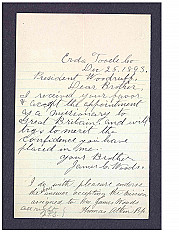 Erda Tooele Co
Dec 28, 1893.
President Woodruff,
Dear Brother,
I received your favor
& accept the appointment
as a missionary to
Great Britain and will
try to merit the
confidence you have
placed in me.
Your Brother
James
I do with pleasure endorse
the answer accepting the mission
assigned to Bro James
Thomas Atkin Bp.